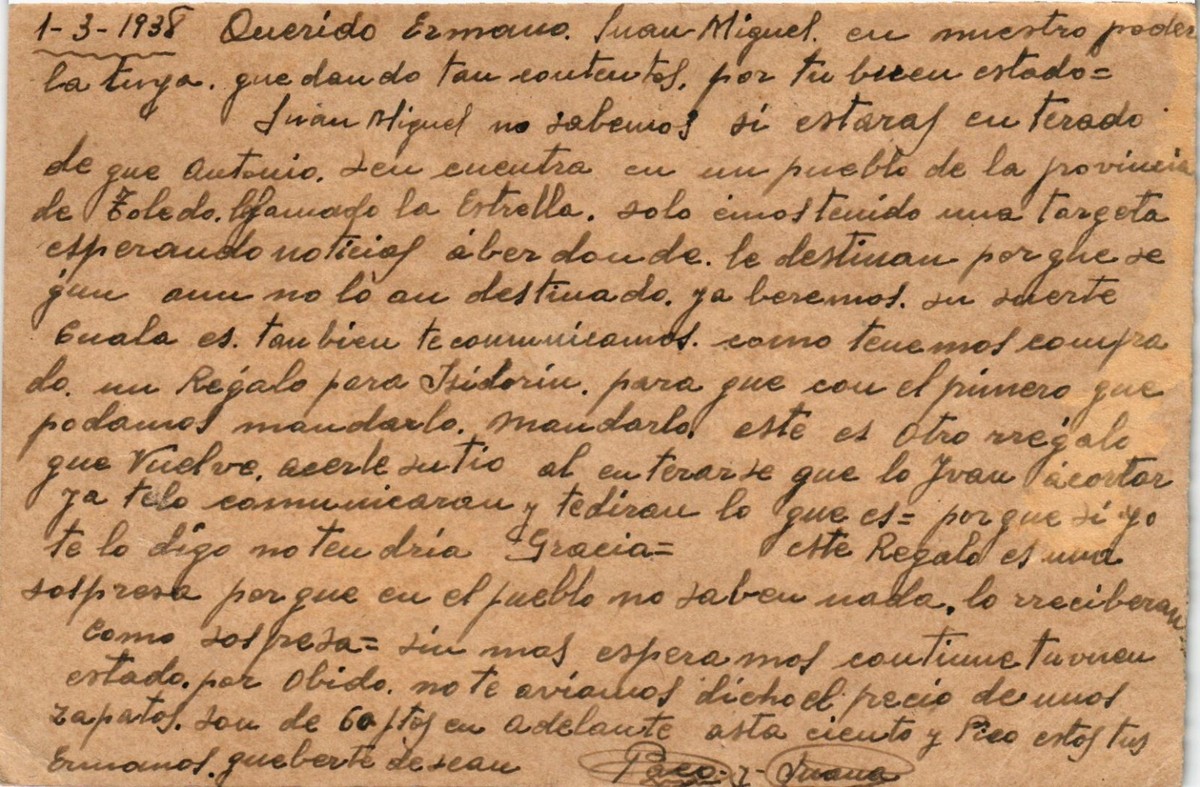 1-3-1938 Querido Ermano. Juan Miguel. en nuestro poder
la tuya. quedando tan contentos. por tu buen estado=
Juan Miguel no sabemos si estaras en terado
de que Antonio. seen cuentra en un pueblo de la provincia
de Toledo. llamado la Estrella. solo emos tenido una targeta
esperando noticias áber donde. le destinan por que se
gun aun no lò an destinado. ya beremos. su suerte
Cuala es. tanbien te comunicamos. como tenemos compra
do. un Regalo para Isidorin. para que con el primero que
podamos mandarlo. mandarlo. este es otro rregalo
que Vuelve. acerle su tio al en terarse que lo Yvan ácortar
ya telo comunicaran y tediran lo que es= por que si yo
te lo digo no ten dria Gracia= este Regalo es una
sospresa por que en el pueblo no saben nada. lo rreciberan
Como sospresa= sin mas espera mos continue tuvuen
estado. por Obido. no te aviamos dicho el precio de unos
zapatos. son de 60 ptos en adelante asta ciento y Pico estos tus
Ermanos. queberte desean Paco. y Juana